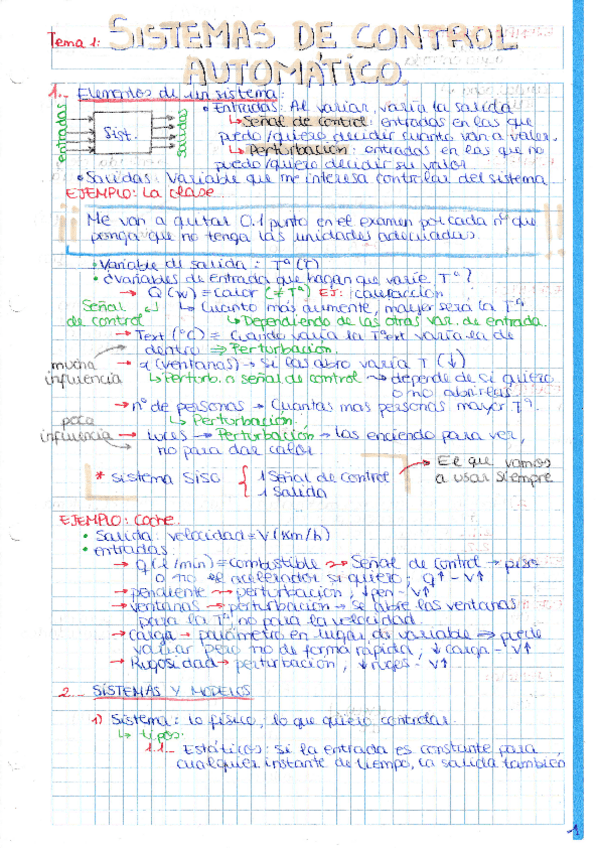 Tema 1: SISTEMAS DE CONTROL
AUTOMÁTICO.
1.- Elementos de un sistema:
entradas
Sist.
salidas
• Entradas: Al variar, varía la salida
↳ Señal de control: entradas en las que
puedo/quiero decidir cuanto van a valer.
↳ Perturbación: entradas en las que no
puedo/quiero decidir su valor
• Salidas: Variable que me interesa controlar del sistema
EJEMPLO: La clase
¡¡ Me van a quitar 0.1 punto en el examen por cada nº que !!
ponga que no tenga las unidades adecuadas.
• Variable de salida: Tª (T)
• ¿Variables de entrada que hagan que varíe Tª?
→ Q (w) = calor (≠ Tª) EJ: calefacción
Señal de control ↲ ↳ Cuanto más aumente, mayor será la Tª
↳ Dependiendo de las otras var. de entrada.
→ Text (°C) = Cuando varía la Tªext varía la de
dentro ⇒ Perturbación.
mucha influencia → α (ventanas) → Si las abro varía T (↓)
↳ Perturb. o señal de control → depende de si quiero
o no abrirlas
→ nº de personas → Cuantas mas personas mayor Tª.
↳ Perturbación
poca influencia → → Luces → Perturbación → las enciendo para ver,
no para dar calor
* Sistema SISO { 1 Señal de control
1 Salida
→ El que vamos
a usar siempre
EJEMPLO: Coche
• Salida: velocidad = V (km/h)
• entradas:
→ q (l/min) = combustible → Señal de control → piso
o no el acelerador si quiero; q↑ - V↑
→ pendiente → perturbación, ↓pen - V↑
→ ventanas → perturbación → se abre las ventanas
para la Tª, no para la velocidad.
→ carga → parámetro en lugar de variable ⇒ puede
variar pero no de forma rápida, ↓carga - V↑
→ Rugosidad → perturbación, ↓rugos - V↑
2.- SISTEMAS Y MODELOS
1) Sistema: lo físico, lo que quiero controlar.
↳ tipos:
1.1.- Estáticos: Si la entrada es constante para
cualquier instante de tiempo, la salida también
1